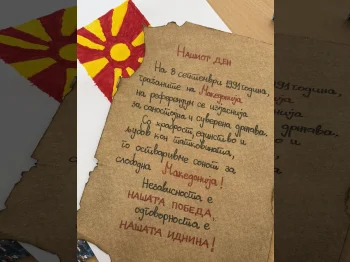 Нашиот ден
На 8 септември 1991 година,
граѓаните на Македонија
на референдум се изјаснија
за самостојна и суверена држава.
Со храброст, единство и
љубов кон татковината,
го остваривме сонот за
слободна Македонија!
Независноста е
НАШАТА ПОБЕДА,
одговорноста е
НАШАТА ИДНИНА!